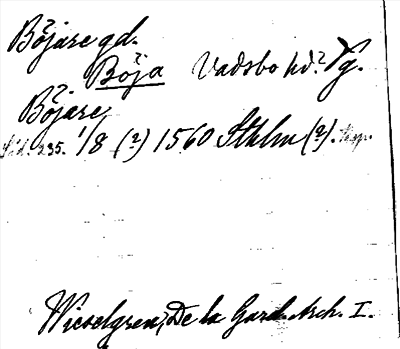 Böjare gd.
Böja Vadsbo hd. Vg.
Böjare
Sid. 235. 1/8 (?) 1560 Sthlm (?).
Wieselgren, De la Gard. Arch. I.